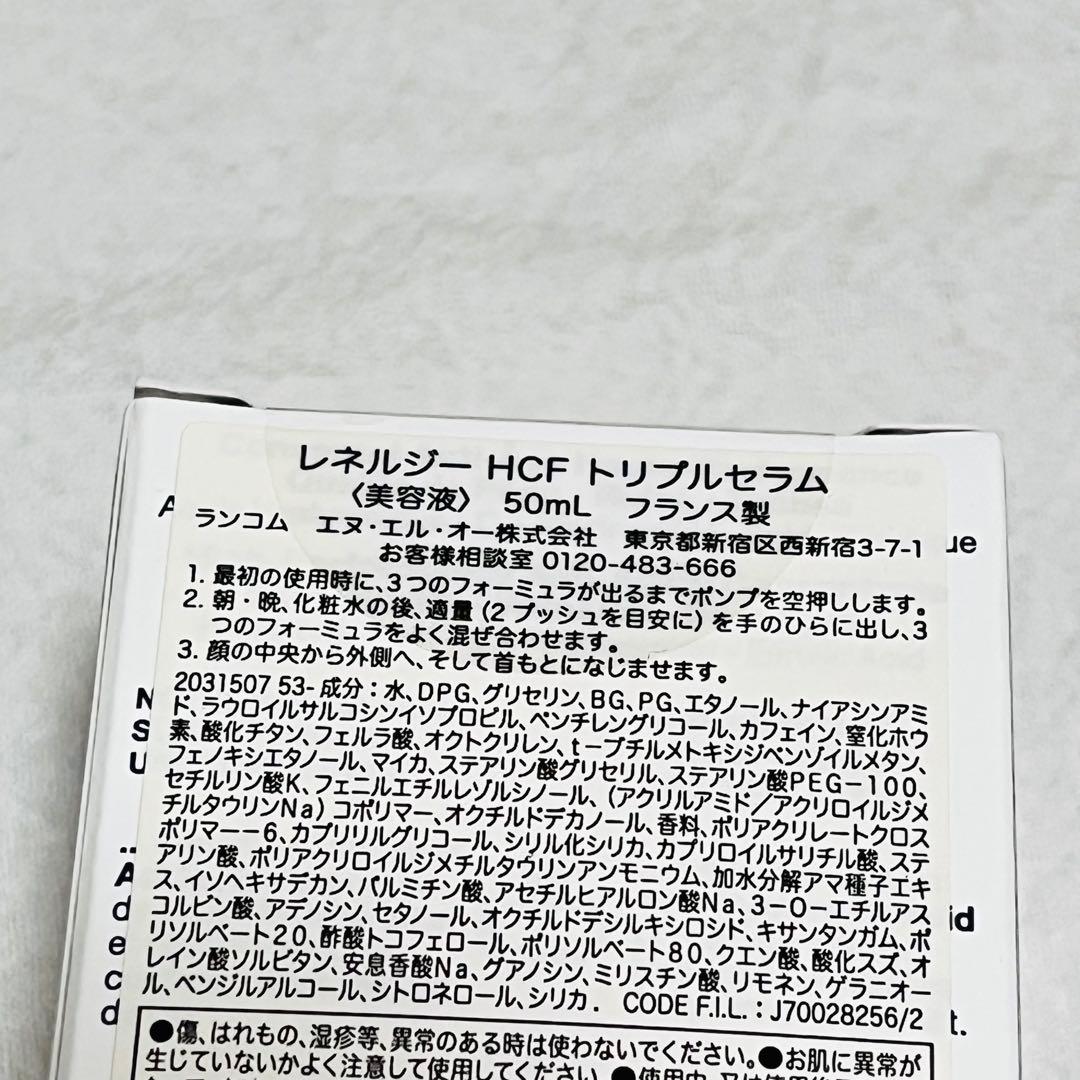 レネルジー HCF トリプルセラム
〈美容液〉 50mL フランス製
ランコム エヌ・エル・オー株式会社 東京都新宿区西新宿3-7-1
お客様相談室 0120-483-666
1. 最初の使用時に、3つのフォーミュラが出るまでポンプを空押しします。
2. 朝・晩、化粧水の後、適量(2プッシュを目安に)を手のひらに出し、3
つのフォーミュラをよく混ぜ合わせます。
3. 顔の中央から外側へ、そして首もとになじませます。
2031507 53-成分:水、DPG、グリセリン、BG、PG、エタノール、ナイアシンアミ
ド、ラウロイルサルコシンイソプロピル、ペンチレングリコール、カフェイン、窒化ホウ
素、酸化チタン、フェルラ酸、オクトクリレン、t-ブチルメトキシジベンゾイルメタン、
フェノキシエタノール、マイカ、ステアリン酸グリセリル、ステアリン酸PEG-100、
セチルリン酸K、フェニルエチルレゾルシノール、(アクリルアミド/アクリロイルジメ
チルタウリンNa)コポリマー、オクチルドデカノール、香料、ポリアクリレートクロス
ポリマー-6、カプリリルグリコール、シリル化シリカ、カプリロイルサリチル酸、ステ
アリン酸、ポリアクリロイルジメチルタウリンアンモニウム、加水分解アマ種子エキ
ス、イソヘキサデカン、パルミチン酸、アセチルヒアルロン酸Na、3-O-エチルアス
コルビン酸、アデノシン、セタノール、オクチルドデシルキシロシド、キサンタンガム、ポ
リソルベート20、酢酸トコフェロール、ポリソルベート80、クエン酸、酸化スズ、オ
レイン酸ソルビタン、安息香酸Na、グアノシン、ミリスチン酸、リモネン、ゲラニオー
ル、ベンジルアルコール、シトロネロール、シリカ. CODE F.I.L.:J70028256/2
●傷、はれもの、湿疹等、異常のある時は使わないでください。●お肌に異常が
生じていないかよく注意して使用してください。●使用中、又は使用後